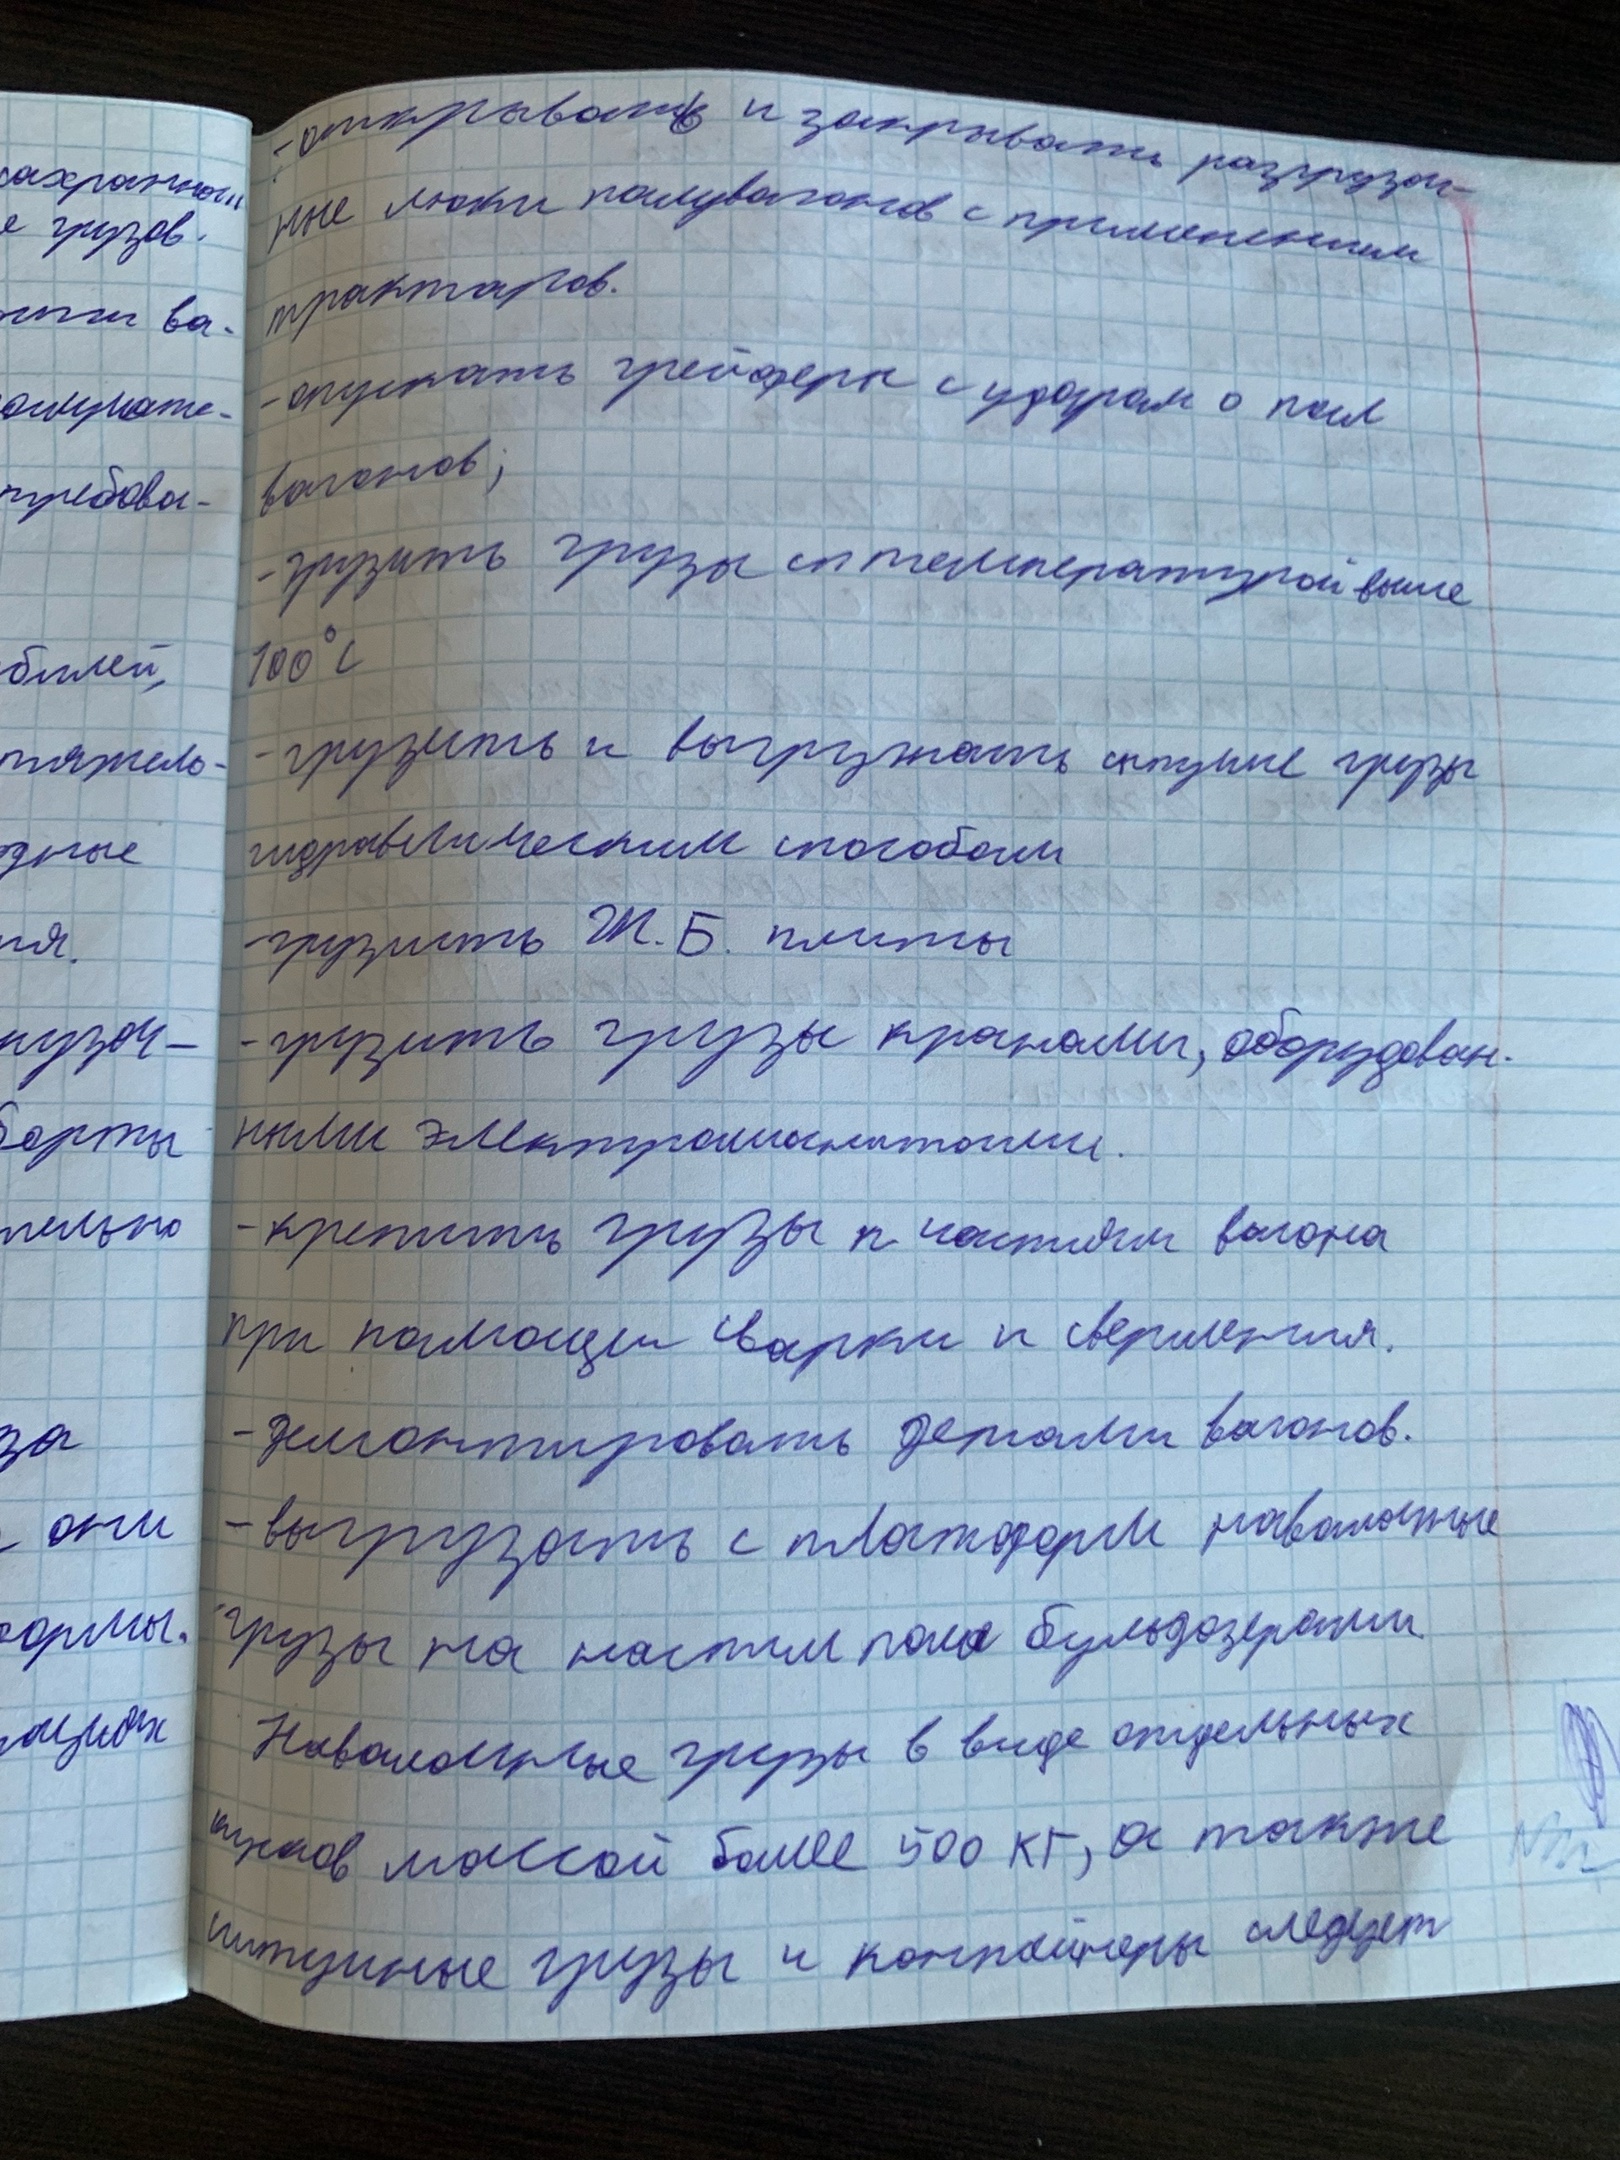 сахранност
е грузов.
ва-
требова-
билей,
тяжело-
дные
ия.
рузоч-
борты
тельно
за
они
формы.
-открывать и закрывать разгрузоч-
ные люки полувагонов с применением
тракторов.
-опускать грейферы с ударам о пол
вагонов;
-грузить грузы с температурой выше
100°С
-грузить и выгружать сыпучие грузы
гидравлическим способом
-грузить Ж.Б. плиты
-грузить грузы кранами, оборудован-
ными электромагнитами.
-крепить грузы к частям вагона
при помощи сварки и сверления.
-демонтировать детали вагонов.
-выгрузать с платформ навалочные
грузы на настил пола бульдозерами
Навалочные грузы в виде отдельных
кусков массой более 500 кг, а также
штучные грузы и контейнеры следует